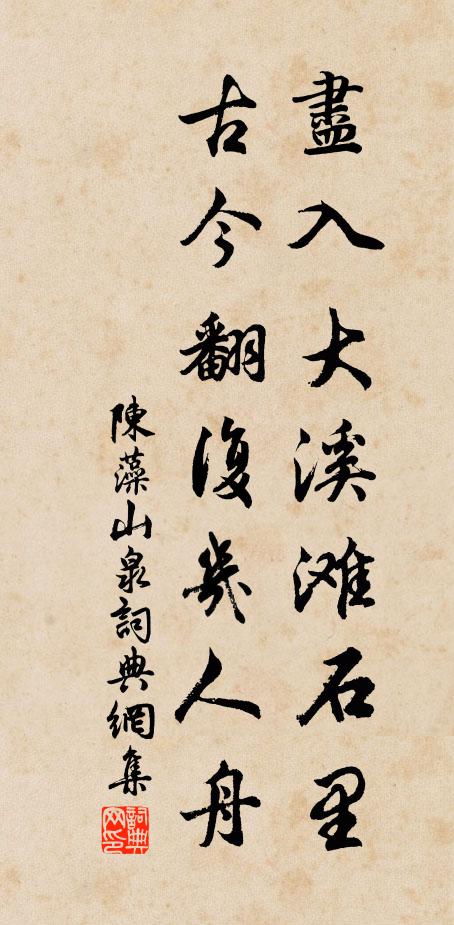 盡入大溪滩石里
古今翻復幾人舟
陳藻山泉詞典網集
詞典網印